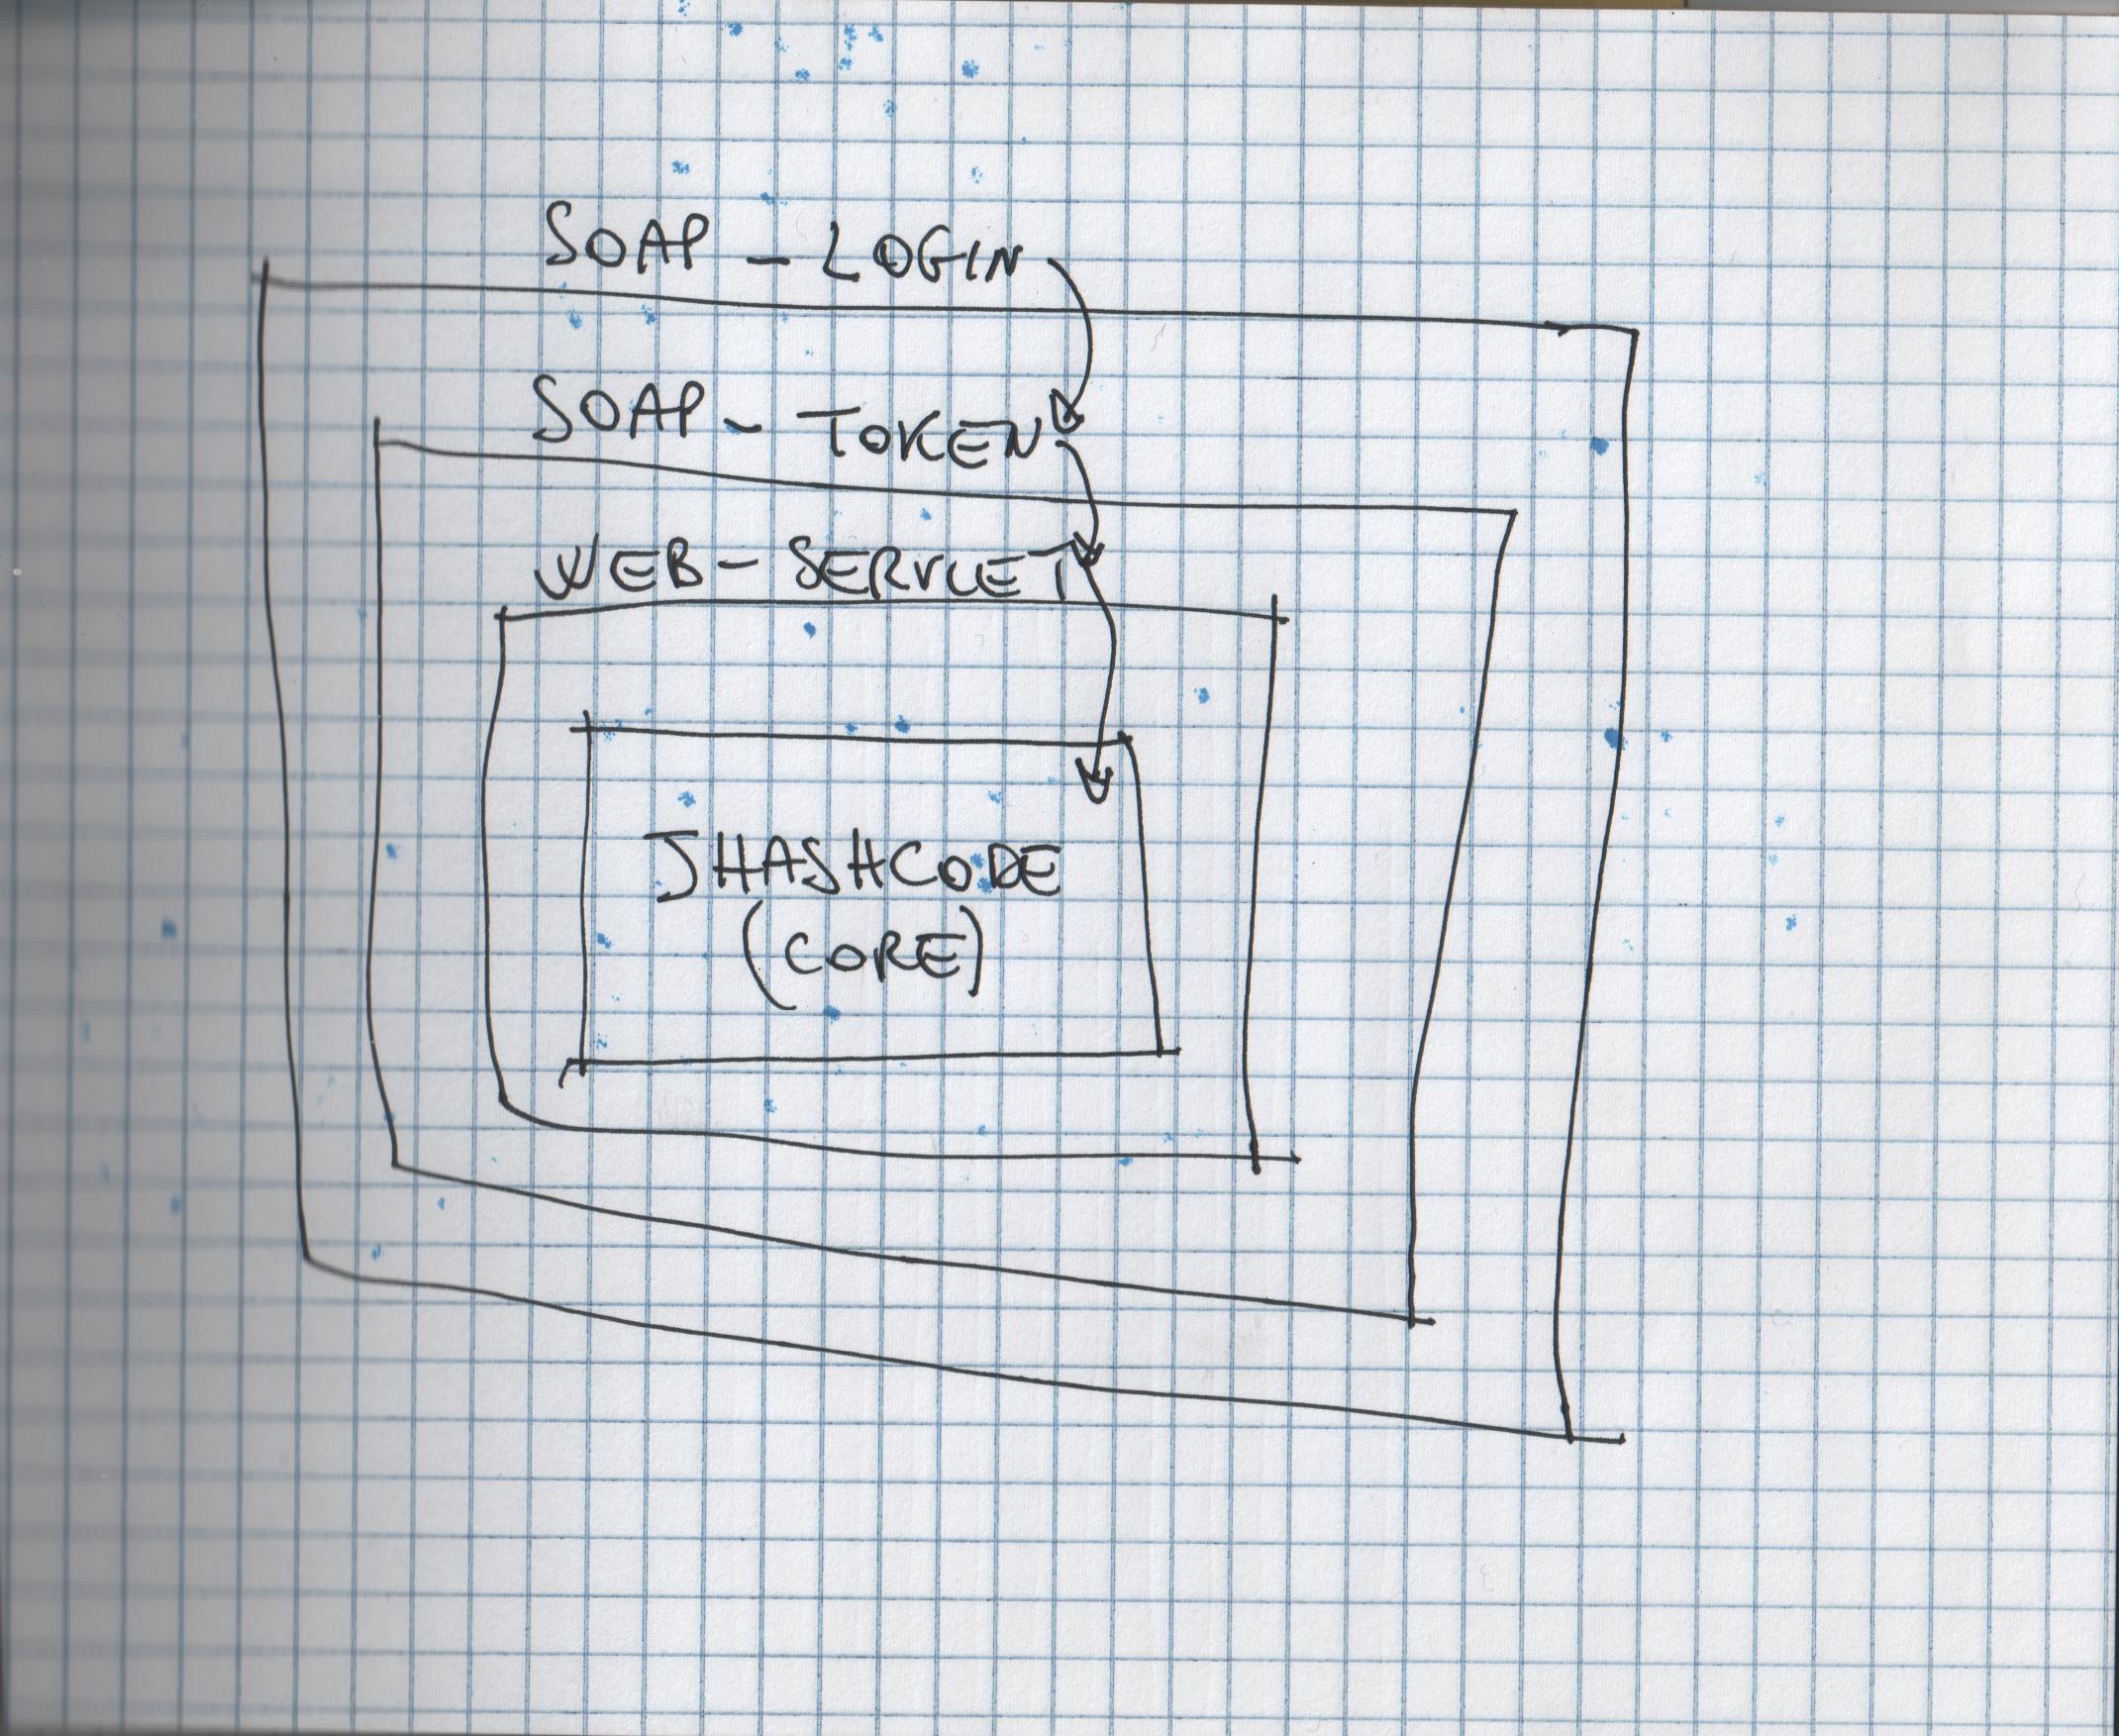 SOAP - LOGIN
SOAP - TOKEN
WEB - SERVLET
JHASHCODE
(CORE)